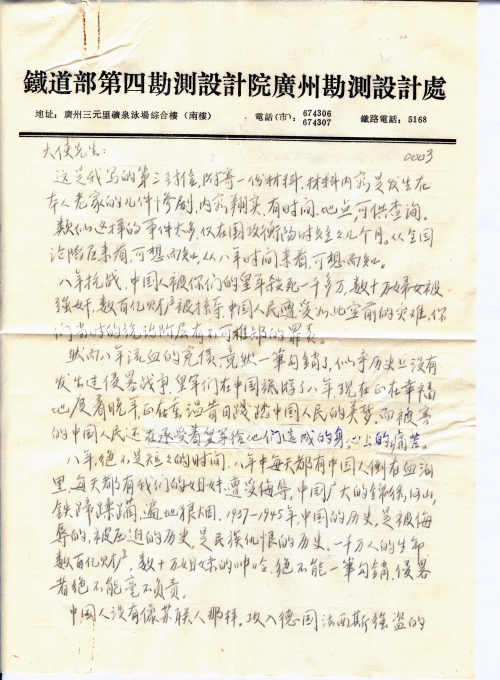 鐵道部第四勘測設計院廣州勘測設計處
地址：廣州三元里礦泉泳場綜合樓（南樓） 電話（市）：674306 674307 鐵路電話：5168
大使先生： 0003
这是我写的第三封信，附寄一份材料，材料内容是发生在
本人老家的几件惨剧，内容翔实，有时间、地点，可供查询。
类似这样的事件太多，仅在国攻衡阳时短短几个月。从全国
沦陷区来看，可想而知，从八年时间来看，可想而知。
八年抗战，中国人被你们的皇军杀死一千多万，数十万妇女被
强奸，数百亿财产被掠夺，中国人民遭受如此空前的灾难，你
们当时的统治阶层有不可推卸的罪责。
然而八年流血的冤债，竟然一笔勾销了，似乎历史上没有
发生过侵畧战争，皇军们在中国旅游了八年，现在正在幸福
地度着晚年，正在温昔日践踏中国人民的美梦，而被害
的中国人民还在承受着皇军给他们造成的身心上的痛苦。
八年，绝不是短短的时间，八年中每天都有中国人倒在血泊
里，每天都有我们的姐妹遭受侮辱，中国广大的锦绣河山，
铁蹄蹂躏，遍地狼烟。1937-1945年，中国的历史，是被侮
辱的，被压迫的历史，是民族仇恨的历史，一千万人的生命
数百亿财产，数十万姐妹的呻吟，绝不能一筆勾銷，侵畧
者绝不能毫不负责。
中国人没有像苏联人那样，攻入德国法西斯强盗的